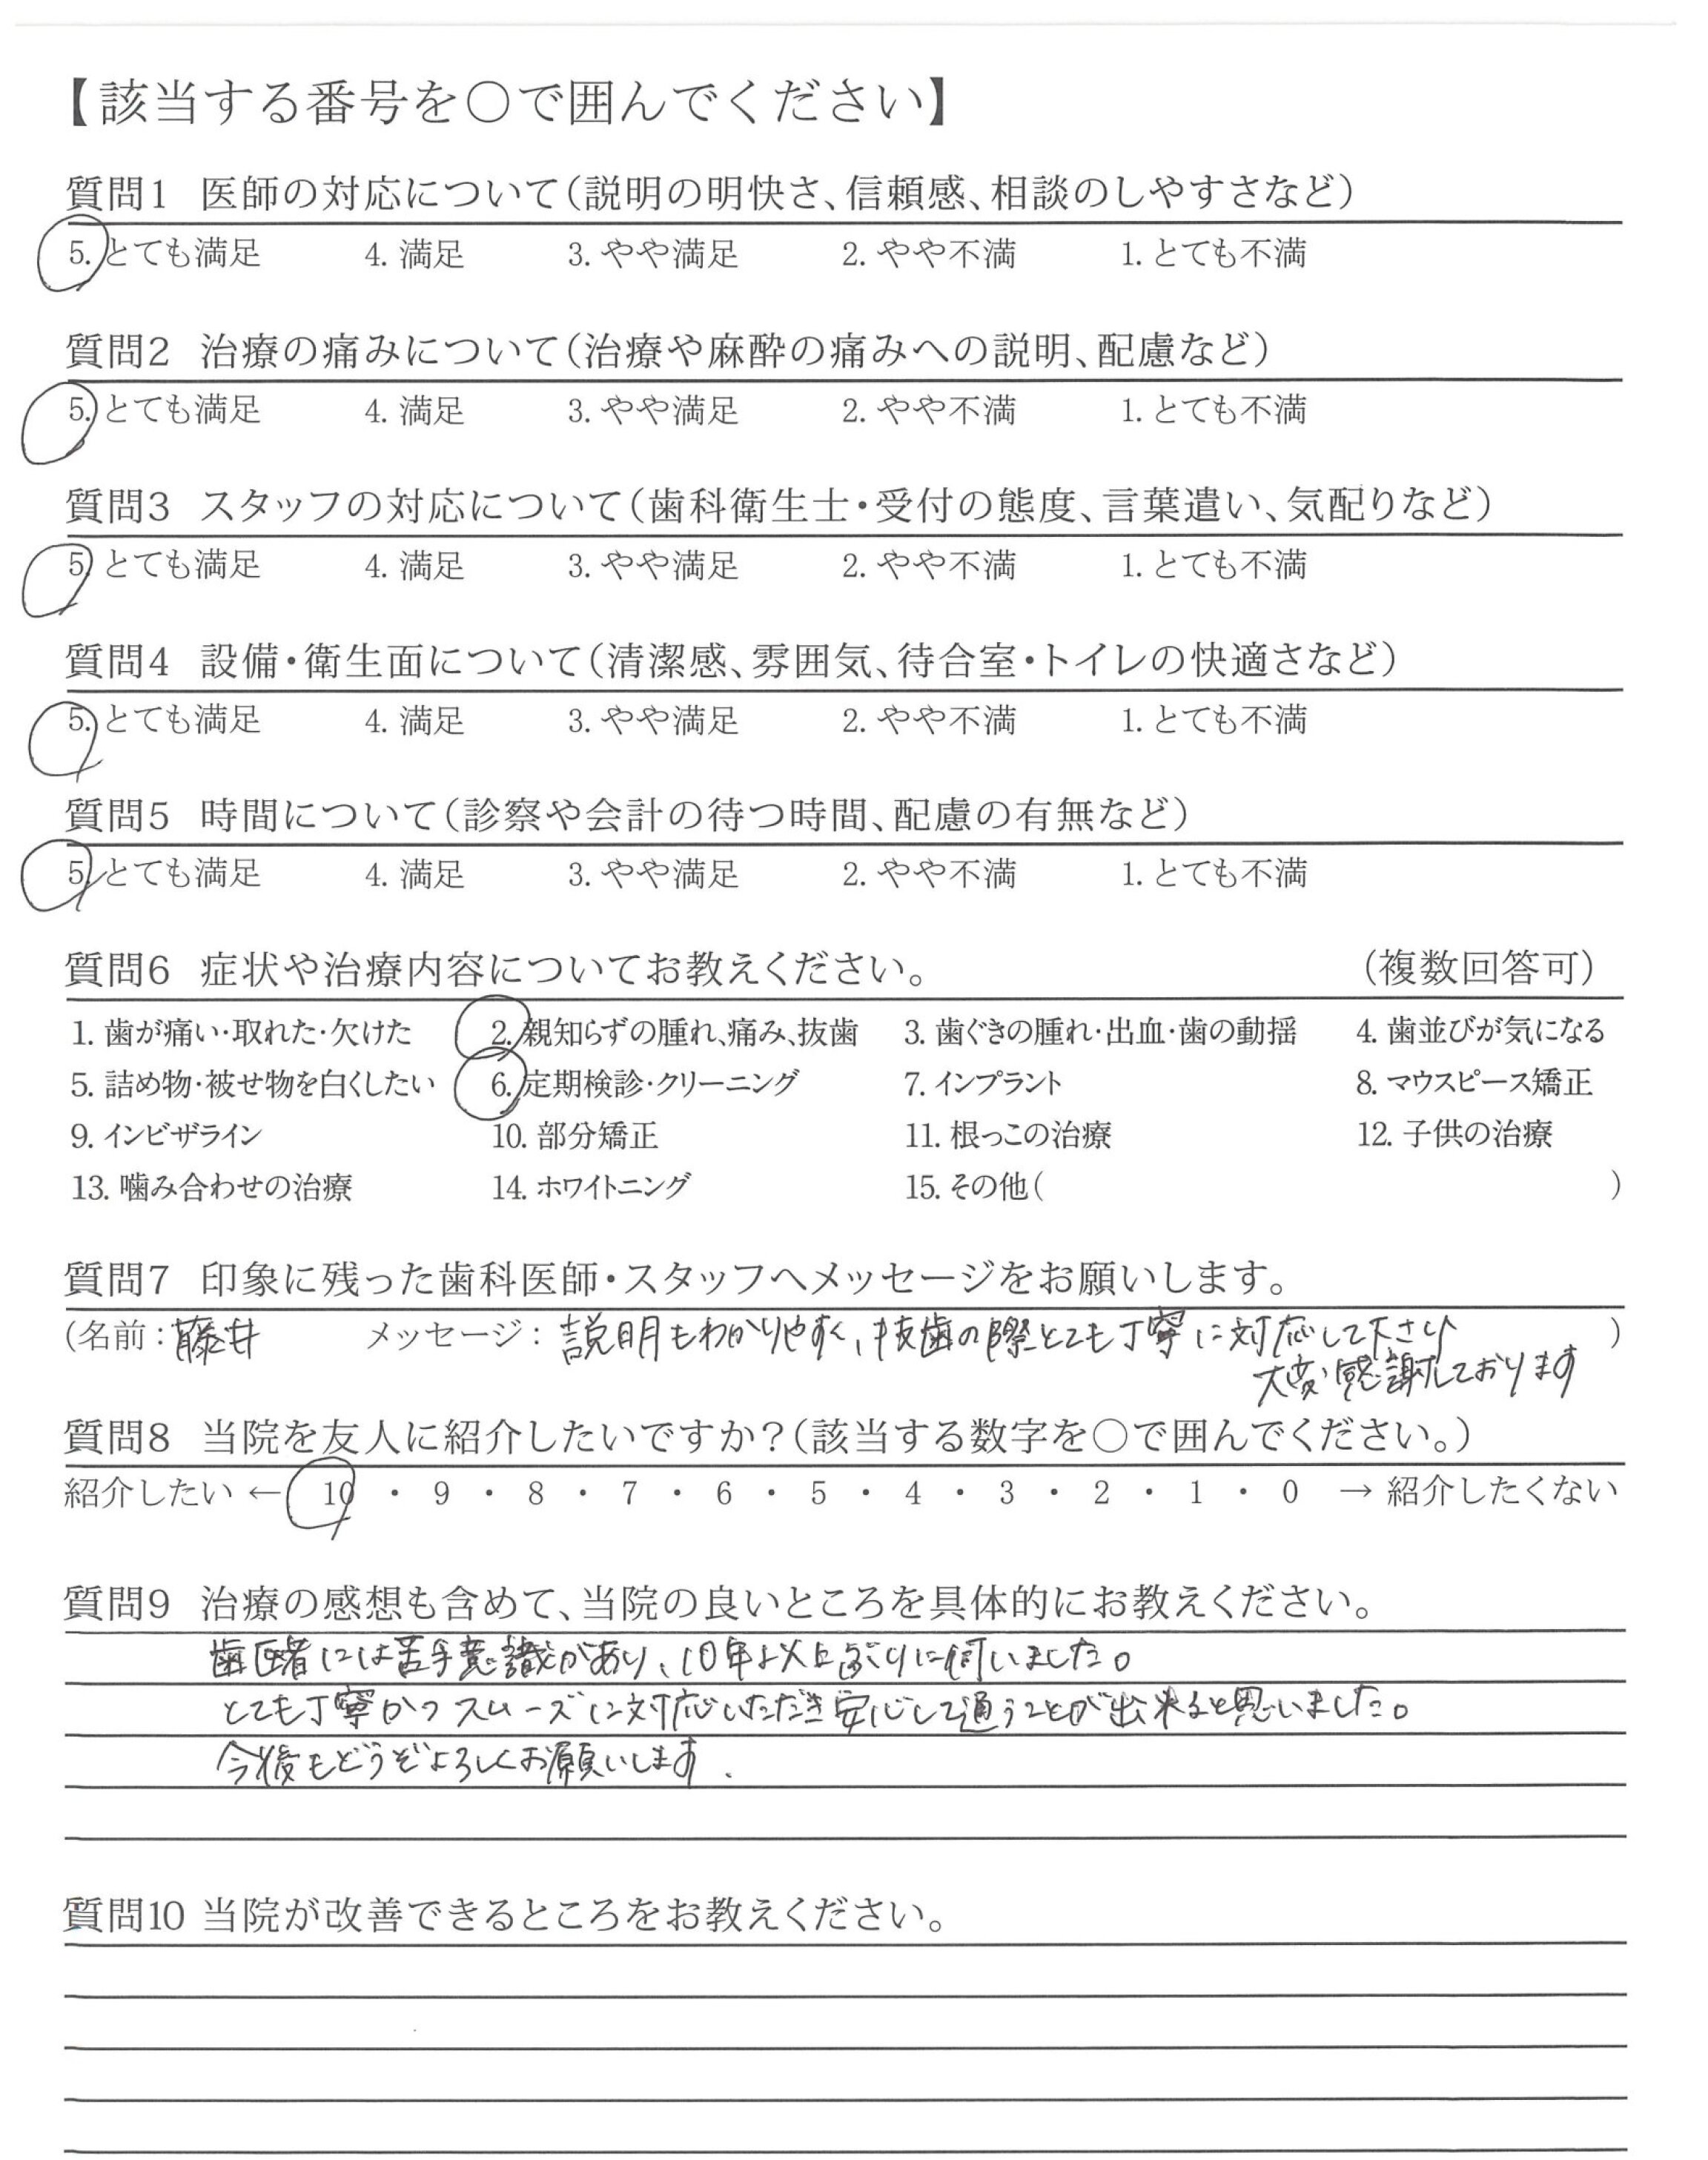 【該当する番号を○で囲んでください】
質問1 医師の対応について(説明の明快さ、信頼感、相談のしやすさなど)
5. とても満足 4. 満足 3. やや満足 2. やや不満 1. とても不満
質問2 治療の痛みについて(治療や麻酔の痛みへの説明、配慮など)
5. とても満足 4. 満足 3. やや満足 2. やや不満 1. とても不満
質問3 スタッフの対応について(歯科衛生士・受付の態度、言葉遣い、気配りなど)
5. とても満足 4. 満足 3. やや満足 2. やや不満 1. とても不満
質問4 設備・衛生面について(清潔感、雰囲気、待合室・トイレの快適さなど)
5. とても満足 4. 満足 3. やや満足 2. やや不満 1. とても不満
質問5 時間について(診察や会計の待つ時間、配慮の有無など)
5. とても満足 4. 満足 3. やや満足 2. やや不満 1. とても不満
質問6 症状や治療内容についてお教えください。 (複数回答可)
1. 歯が痛い・取れた・欠けた 2. 親知らずの腫れ、痛み、抜歯 3. 歯ぐきの腫れ・出血・歯の動揺 4. 歯並びが気になる
5. 詰め物・被せ物を白くしたい 6. 定期検診・クリーニング 7. インプラント 8. マウスピース矯正
9. インビザライン 10. 部分矯正 11. 根っこの治療 12. 子供の治療
13. 噛み合わせの治療 14. ホワイトニング 15. その他( )
質問7 印象に残った歯科医師・スタッフへメッセージをお願いします。
(名前:藤井 メッセージ:説明もわかりやすく、抜歯の際とても丁寧に対応して下さり )
大変感謝しております
質問8 当院を友人に紹介したいですか?(該当する数字を○で囲んでください。)
紹介したい ← 10 ・ 9 ・ 8 ・ 7 ・ 6 ・ 5 ・ 4 ・ 3 ・ 2 ・ 1 ・ 0 → 紹介したくない
質問9 治療の感想も含めて、当院の良いところを具体的にお教えください。
歯医者には苦手意識があり、10年以上ぶりに伺いました。
とても丁寧かつスムーズに対応いただき安心して通うことが出来ると思いました。
今後もどうぞよろしくお願いします.
質問10 当院が改善できるところをお教えください。